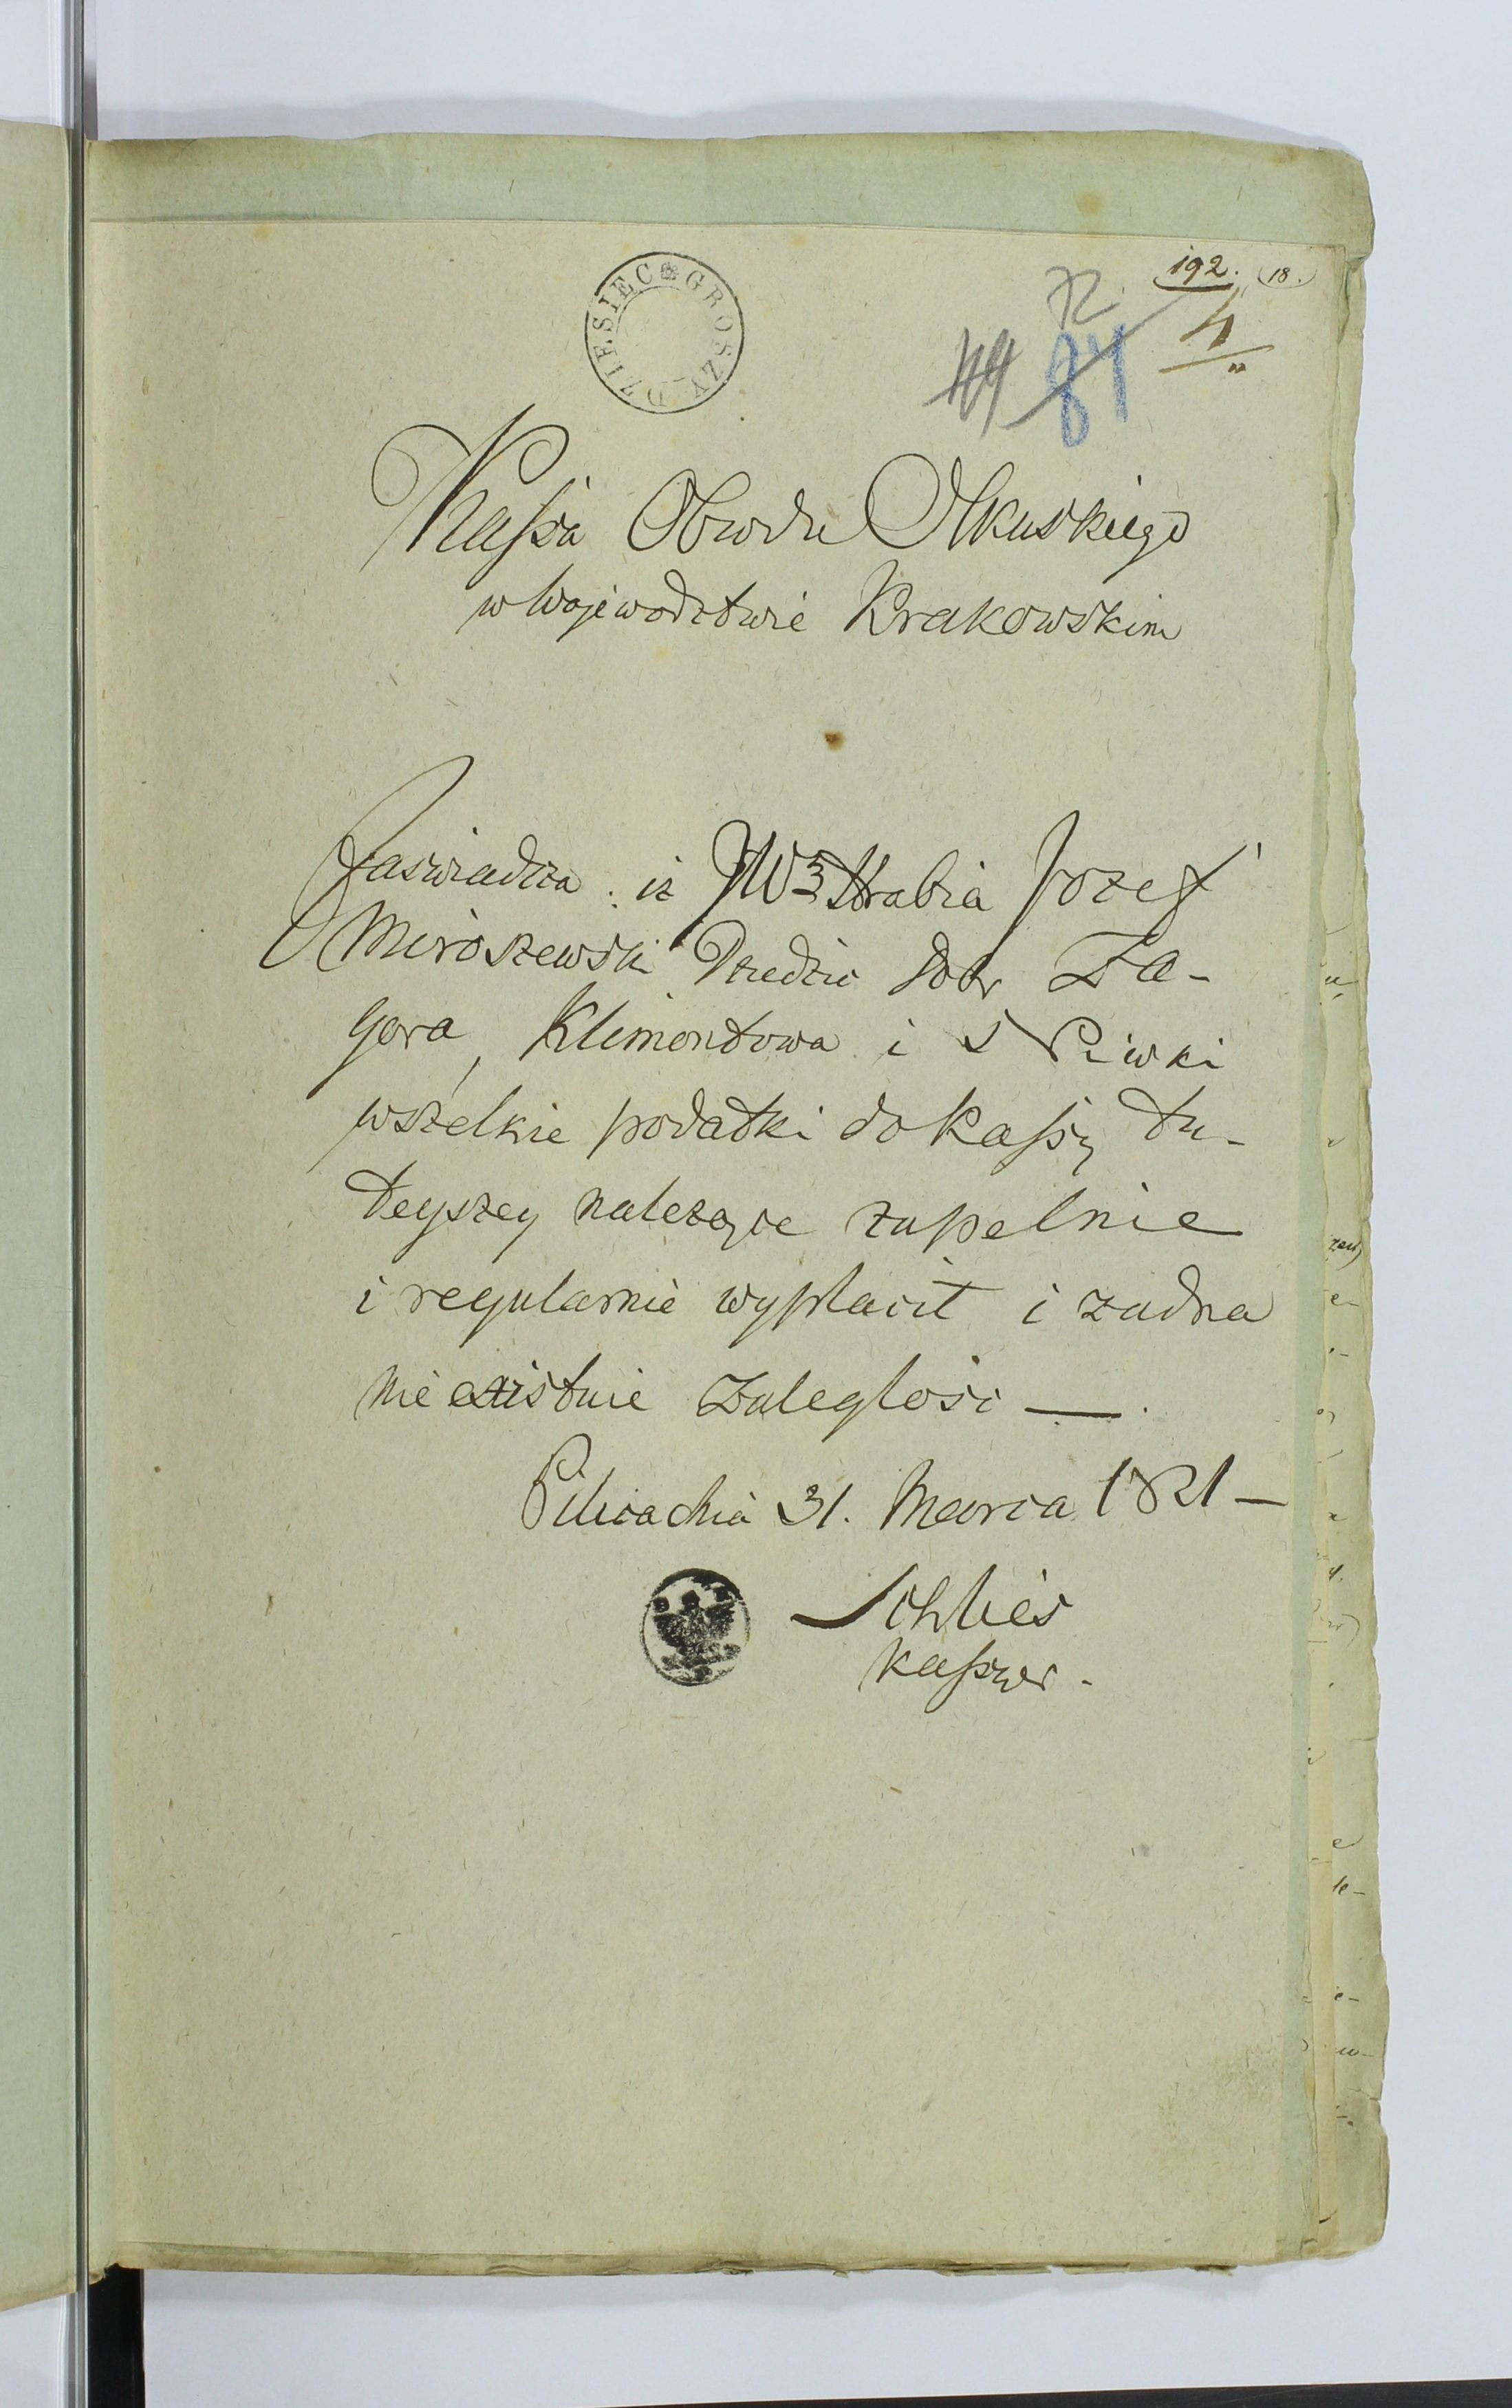 192. 18.
72.
84 4
DZIESIEC GROSZY
Kassa Obwodu Olkuskiego
w Wojewodztwie Krakowskim
Zaswiadcza iż JW Hrabia Jozef
Mieroszewski Dziedzic Dobr Za-
gorza, Klimontowa i Niwki
wszelkie podatki do Kassy tu-
teyszey należące zupełnie
i regularnie wypłacił i żadna
nie existuie zaległość —
Pilica dnia 31. Marca 1821 —
Schlies
Kassyer.